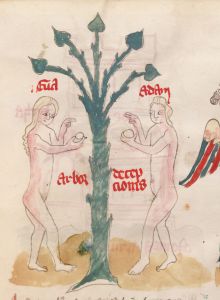 Eua
Adam
Arbor
decep
cionis